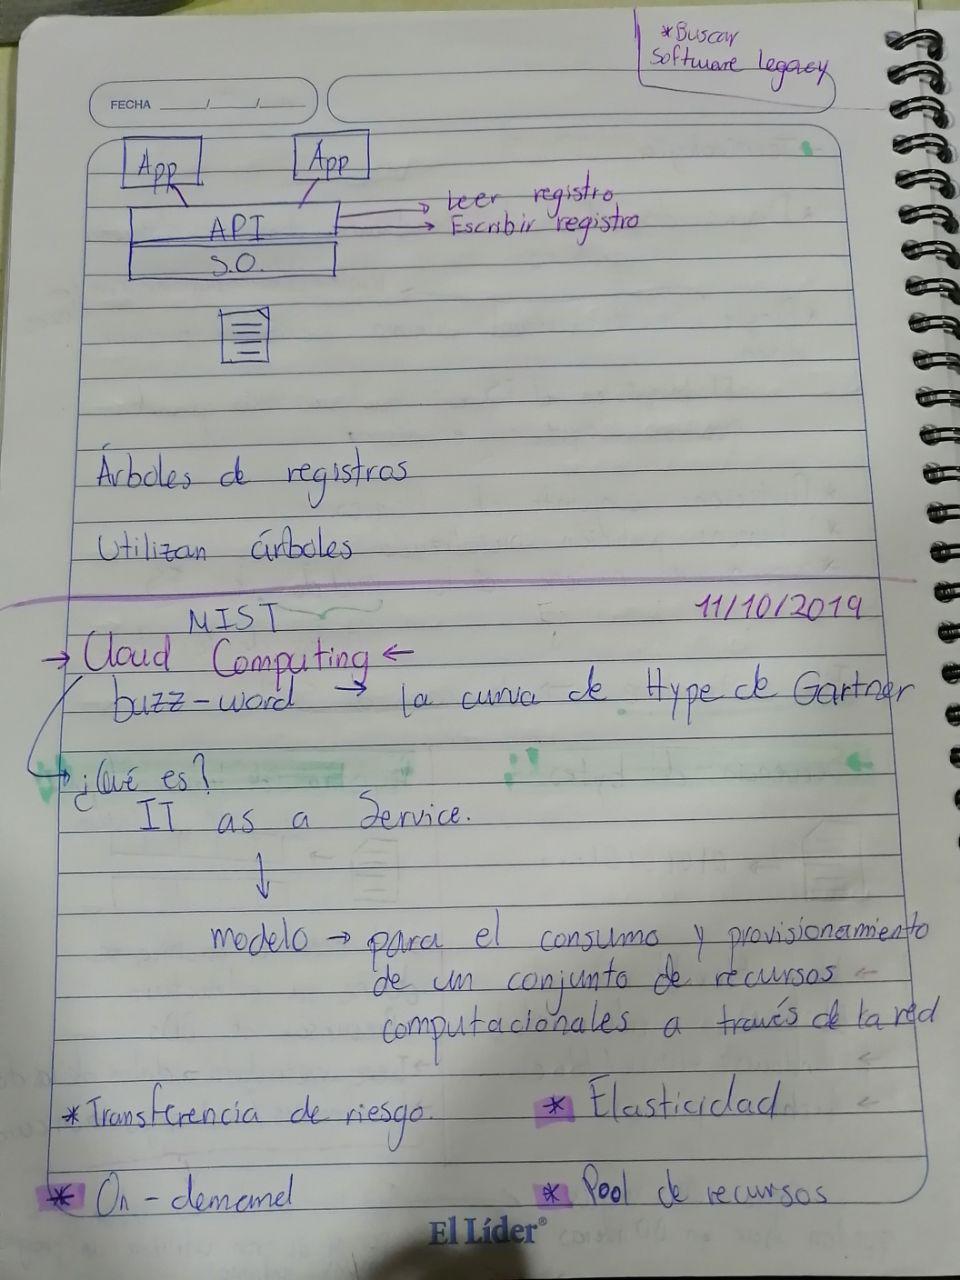 *Buscar
Software legacy
FECHA ___/___/___
App App
API
Leer registro
Escribir registro
S.O.
Árboles de registros
Utilizan árboles
NIST 11/10/2019
→ Cloud Computing ←
buzz-word → la curva de Hype de Gartner
¿Qué es?
IT as a Service.
modelo → para el consumo y provisionamiento
de un conjunto de recursos
computacionales a través de la red
* Transferencia de riesgo. * Elasticidad
* On-demand * Pool de recursos
El Líder®